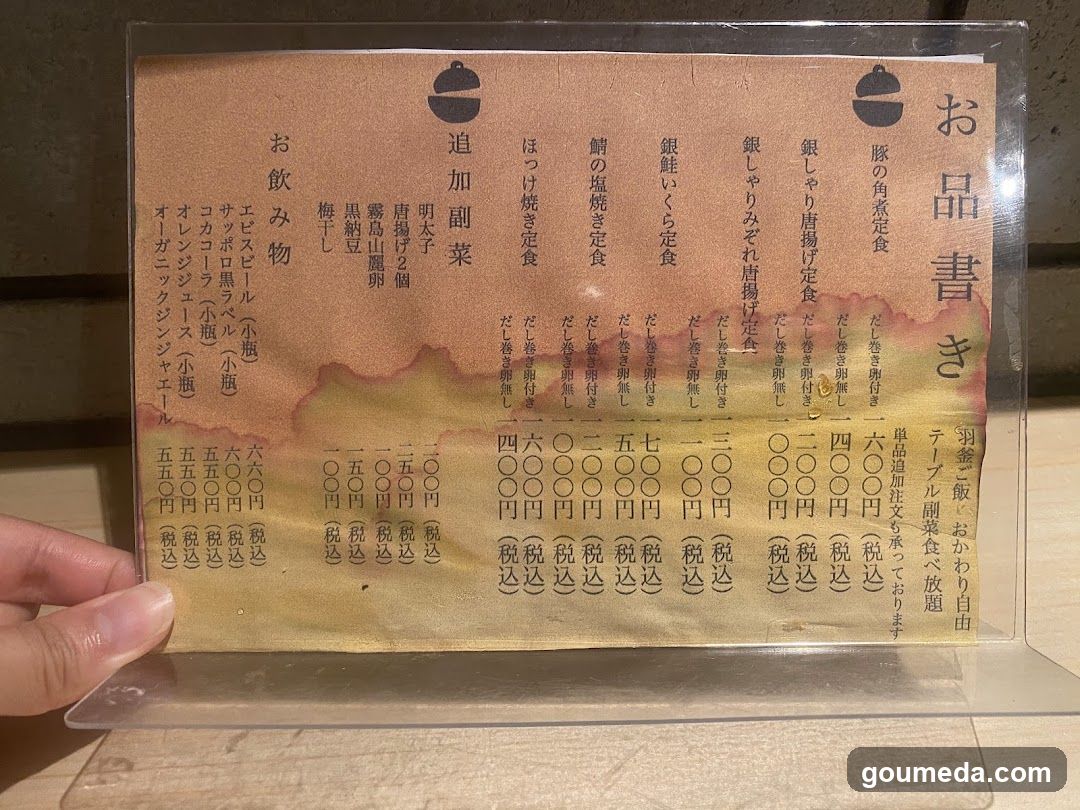 お品書き
羽釜ご飯 おかわり自由
テーブル副菜食べ放題
単品追加注文も承っております
豚の角煮定食
だし巻き卵付き 一六〇〇円（税込）
だし巻き卵無し 一四〇〇円（税込）
銀しゃり唐揚げ定食
だし巻き卵付き 一二〇〇円（税込）
だし巻き卵無し 一〇〇〇円（税込）
銀しゃりみぞれ唐揚げ定食
だし巻き卵付き 一三〇〇円（税込）
だし巻き卵無し 一一〇〇円（税込）
銀鮭いくら定食
だし巻き卵付き 一七〇〇円（税込）
だし巻き卵無し 一五〇〇円（税込）
鯖の塩焼き定食
だし巻き卵付き 一二〇〇円（税込）
だし巻き卵無し 一〇〇〇円（税込）
ほっけ焼き定食
だし巻き卵付き 一六〇〇円（税込）
だし巻き卵無し 一四〇〇円（税込）
追加副菜
明太子 二〇〇円（税込）
唐揚げ2個 二五〇円（税込）
霧島山麗卵 一〇〇円（税込）
黒納豆 一五〇円（税込）
梅干し 一〇〇円（税込）
お飲み物
エビスビール（小瓶） 六六〇円（税込）
サッポロ黒ラベル（小瓶） 六〇〇円（税込）
コカコーラ（小瓶） 五五〇円（税込）
オレンジジュース（小瓶） 五五〇円（税込）
オーガニックジンジャエール 五五〇円（税込）
goumeda.com